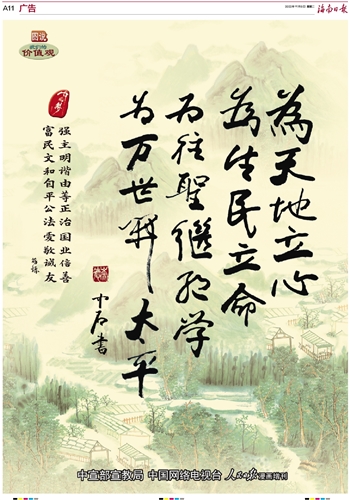 A11 广告
海南日报
图说
我们的
价值观
中国梦
為天地立心
為生民立命
为往聖繼絕学
为万世開太平
中石書
富强
民主
文明
和谐
自由
平等
公正
法治
爱国
敬业
诚信
友善
中宣部宣教局 中国网络电视台 人民日报漫画增刊